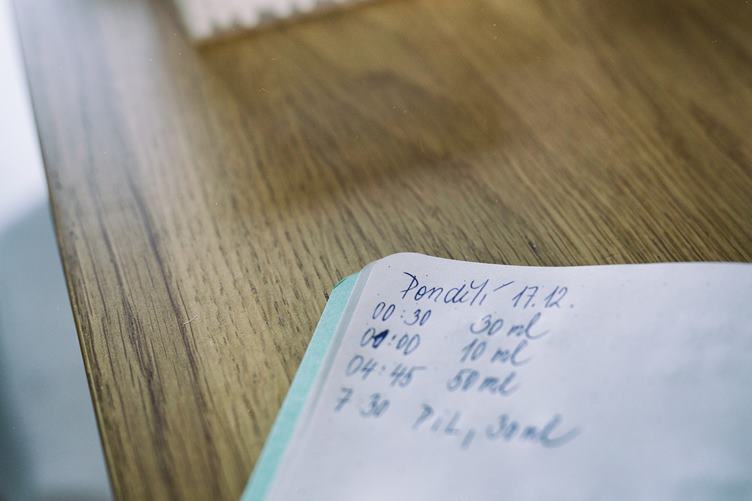 Pondělí 17.12.
00:30 30 ml
00:00 10 ml
04:45 50 ml
7:30 Pil, 30 ml